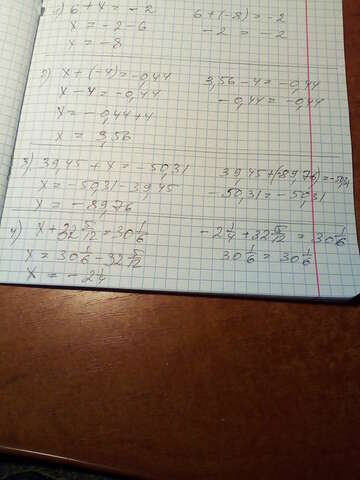 1) 6 + x = -2 6 + (-8) = -2
x = -2 - 6 -2 = -2
x = -8
2) x + (-4) = -0,44 3,56 - 4 = -0,44
x - 4 = -0,44 -0,44 = -0,44
x = -0,44 + 4
x = 3,56
3) 39,45 + x = -50,31 39,45 + (-89,76) = -50,31
x = -50,31 - 39,45 -50,31 = -50,31
x = -89,76
4) x + 32 5/12 = 30 1/6 -2 1/4 + 32 5/12 = 30 1/6
x = 30 1/6 - 32 5/12 30 1/6 = 30 1/6
x = -2 1/4